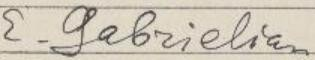 E. Gabrielian